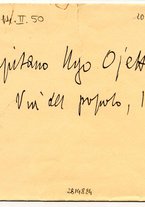 14.II.50
10
pitano Ugo Ojett
Via del popolo, 1
2819884